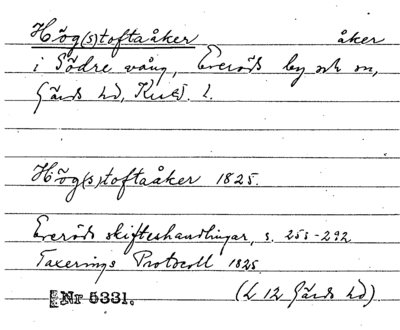 Hög(s)toftaåker åker
i Södre vång, Everöds by och sn,
Gärds hd, Krist. l.
Hög(s)toftaåker 1825.
Everöds skifteshandlingar, s. 255-292
Taxerings Protocoll 1825
Nr 5331. (L 12 Gärds hd)